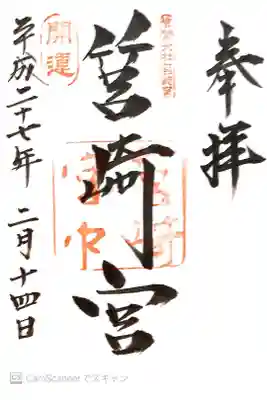 奉拝
筥崎宮
開運
平成二十七年 二月十四日
CamScanner でスキャン